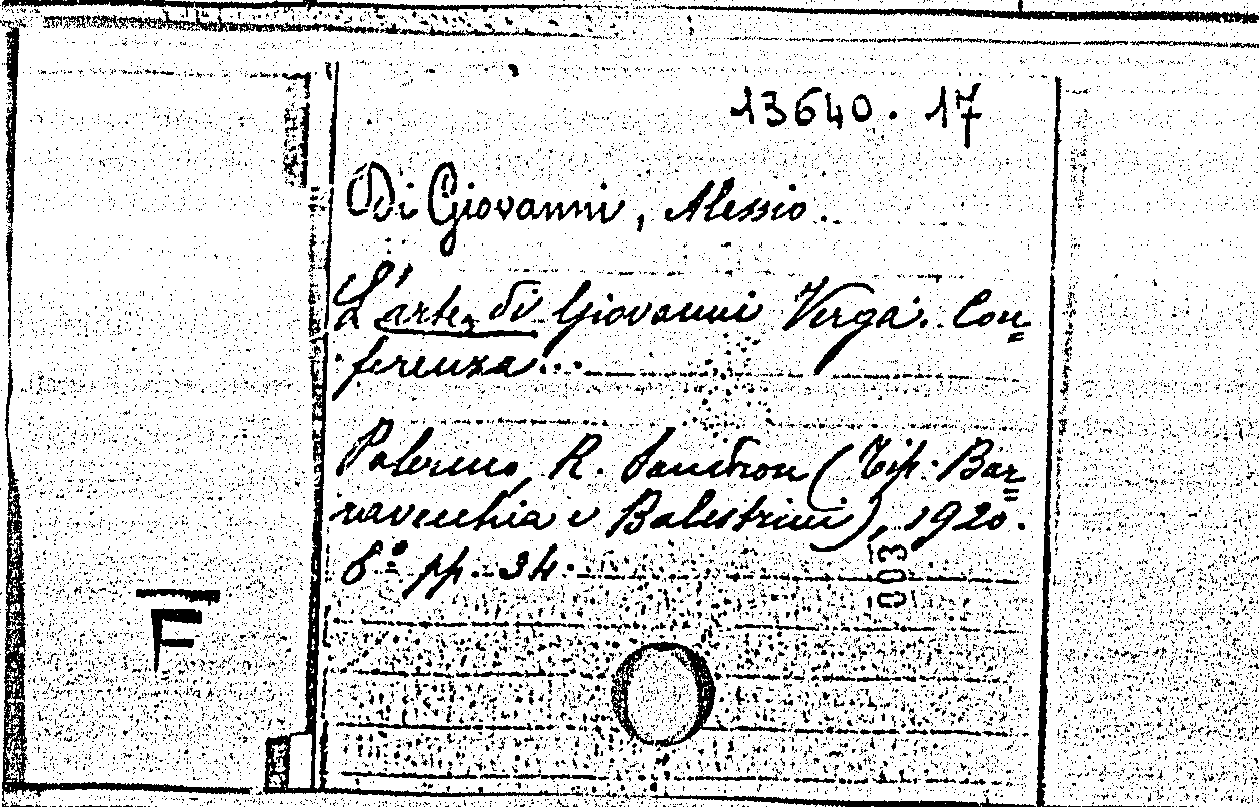 13640. 17
Di Giovanni, Alessio.
L'arte di Giovanni Verga. Con=
ferenza...
Palermo, R. Sandron (Tip. Bar=
ravecchia e Balestrini), 1920.
8º pp. 34.
003
F